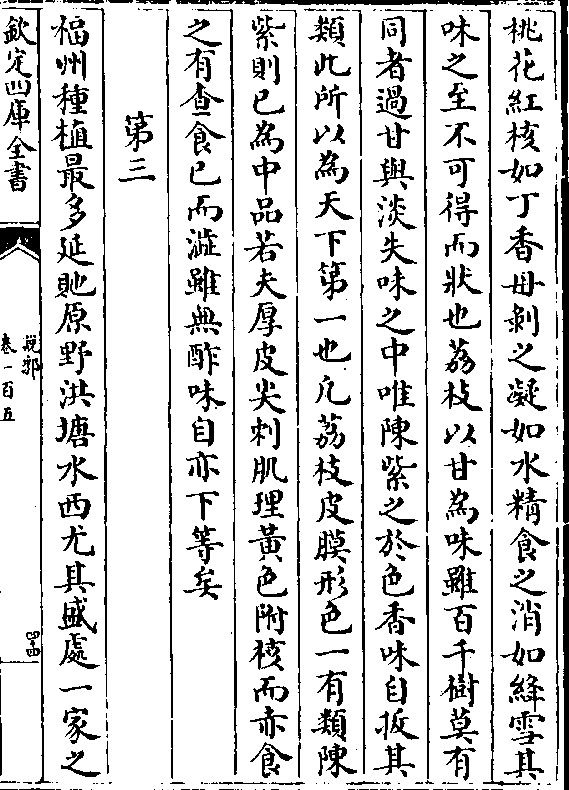 桃花紅核如丁香母剥之凝如水精食之消如絳雪其
味之至不可得而狀也荔枝以甘為味雖百千樹莫有
同者過甘與淡失味之中唯陳紫之於色香味自拔其
類此所以為天下第一也凡荔枝皮膜形色一有類陳
紫則已為中品若夫厚皮尖刺肌理黃色附核而赤食
之有查食已而澁雖無酢味自亦下等矣
第三
福州種植最多延貤原野洪塘水西尤其盛處一家之
欽定四庫全書
說郛
卷一百五
四十四